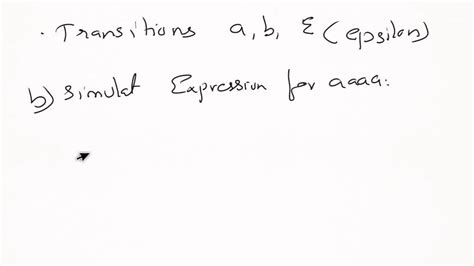 · Transitions a, b, ε (epsilon)
b) Simulat Expression for aaaa: